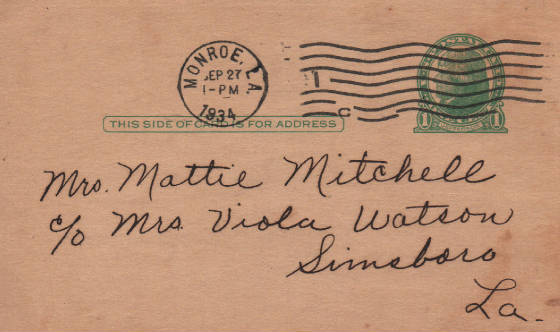 MONROE, LA
SEP 27
1-PM
1934
1
C
THIS SIDE OF CARD IS FOR ADDRESS
1 1
Mrs. Mattie Mitchell
c/o Mrs. Viola Watson
Simsboro
La.